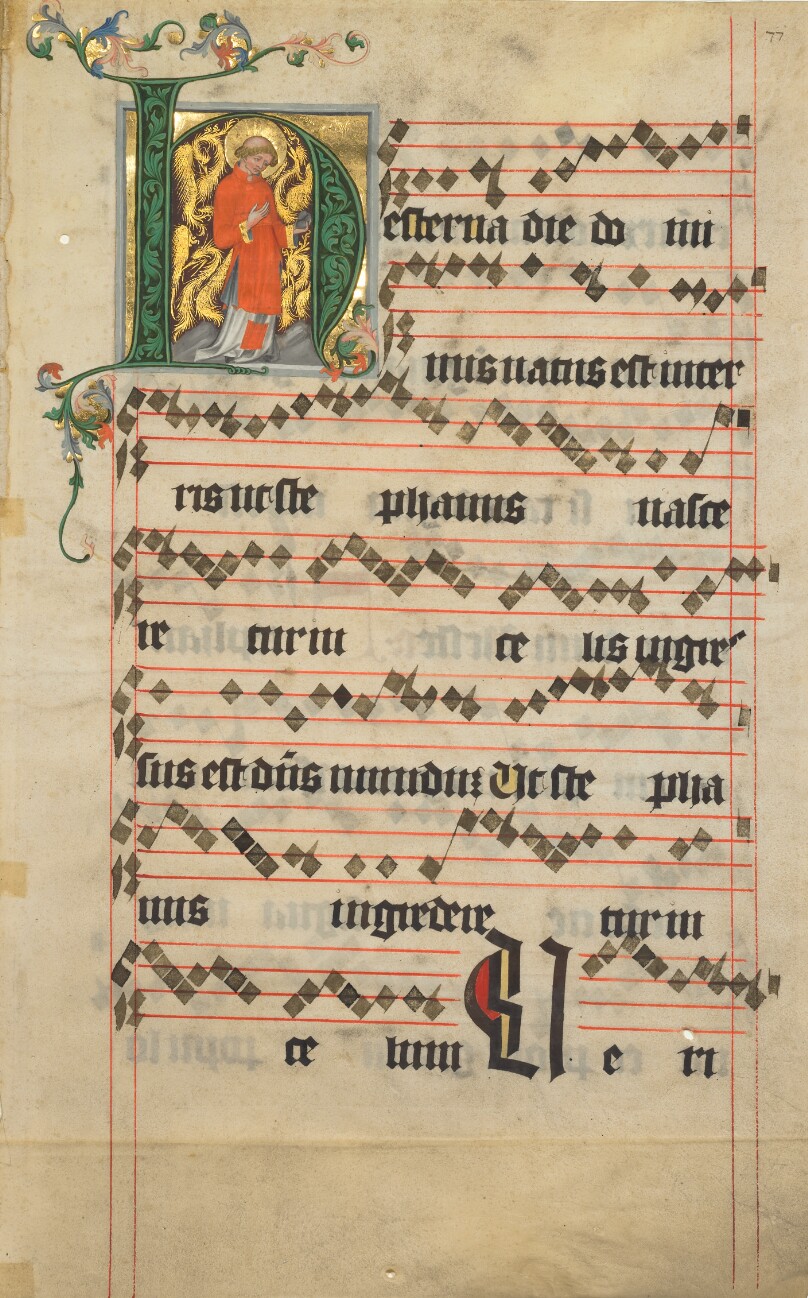 77
Hesterna die do mi
nus natus est in ter
ris ut ste phanus nasce
re tur in ce lis in gre
sus est dñs mundū Ut ste pha
nus ingredere tur in
ce lum V e ri